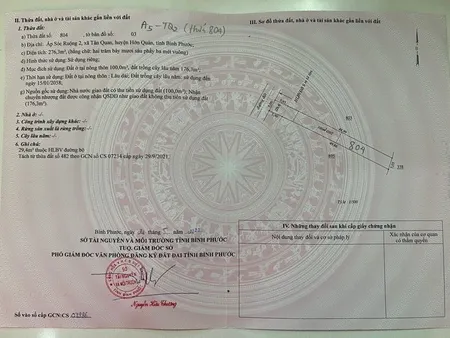 II. Thửa đất, nhà ở và tài sản khác gắn liền với đất
A5-TQ2 (thửa 804)
1. Thửa đất:
a) Thửa đất số: 804 tờ bản đồ số: 03
b) Địa chỉ: Ấp Sóc Ruộng 2, xã Tân Quan, huyện Hớn Quản, tỉnh Bình Phước.
c) Diện tích: 276,3m², (bằng chữ: hai trăm bảy mươi sáu phẩy ba mét vuông)
d) Hình thức sử dụng: Sử dụng riêng;
đ) Mục đích sử dụng: Đất ở tại nông thôn 100,0m², đất trồng cây lâu năm 176,3m²;
e) Thời hạn sử dụng: Đất ở tại nông thôn: Lâu dài; Đất trồng cây lâu năm: sử dụng đến
ngày 15/01/2058;
g) Nguồn gốc sử dụng: Nhà nước giao đất có thu tiền sử dụng đất (100,0m²); Nhận
chuyển nhượng đất được công nhận QSDĐ như giao đất không thu tiền sử dụng đất
(176,3m²).
2. Nhà ở: -/-
3. Công trình xây dựng khác: -/-
4. Rừng sản xuất là rừng trồng: -/-
5. Cây lâu năm: -/-
6. Ghi chú:
29,4m² thuộc HLBV đường bộ
Tách từ thửa đất số 482 theo GCN số CS 07234 cấp ngày 29/9/2021.
Bình Phước, ngày
SỞ TÀI NGUYÊN VÀ MÔI TRƯỜNG TỈNH BÌNH PHƯỚC
TUQ. GIÁM ĐỐC SỞ
PHÓ GIÁM ĐỐC VĂN PHÒNG ĐĂNG KÝ ĐẤT ĐAI TỈNH BÌNH PHƯỚC
SỞ
TÀI NGUYÊN
VÀ MÔI TRƯỜNG
Nguyễn Hữu Phương
Số vào sổ cấp GCN:CS
III. Sơ đồ thửa đất, nhà ở và tài sản khác gắn liền với đất
804
IV. Những thay đổi sau khi cấp giấy chứng nhận
Nội dung thay đổi và cơ sở pháp lý
Xác nhận của cơ quan
có thẩm quyền